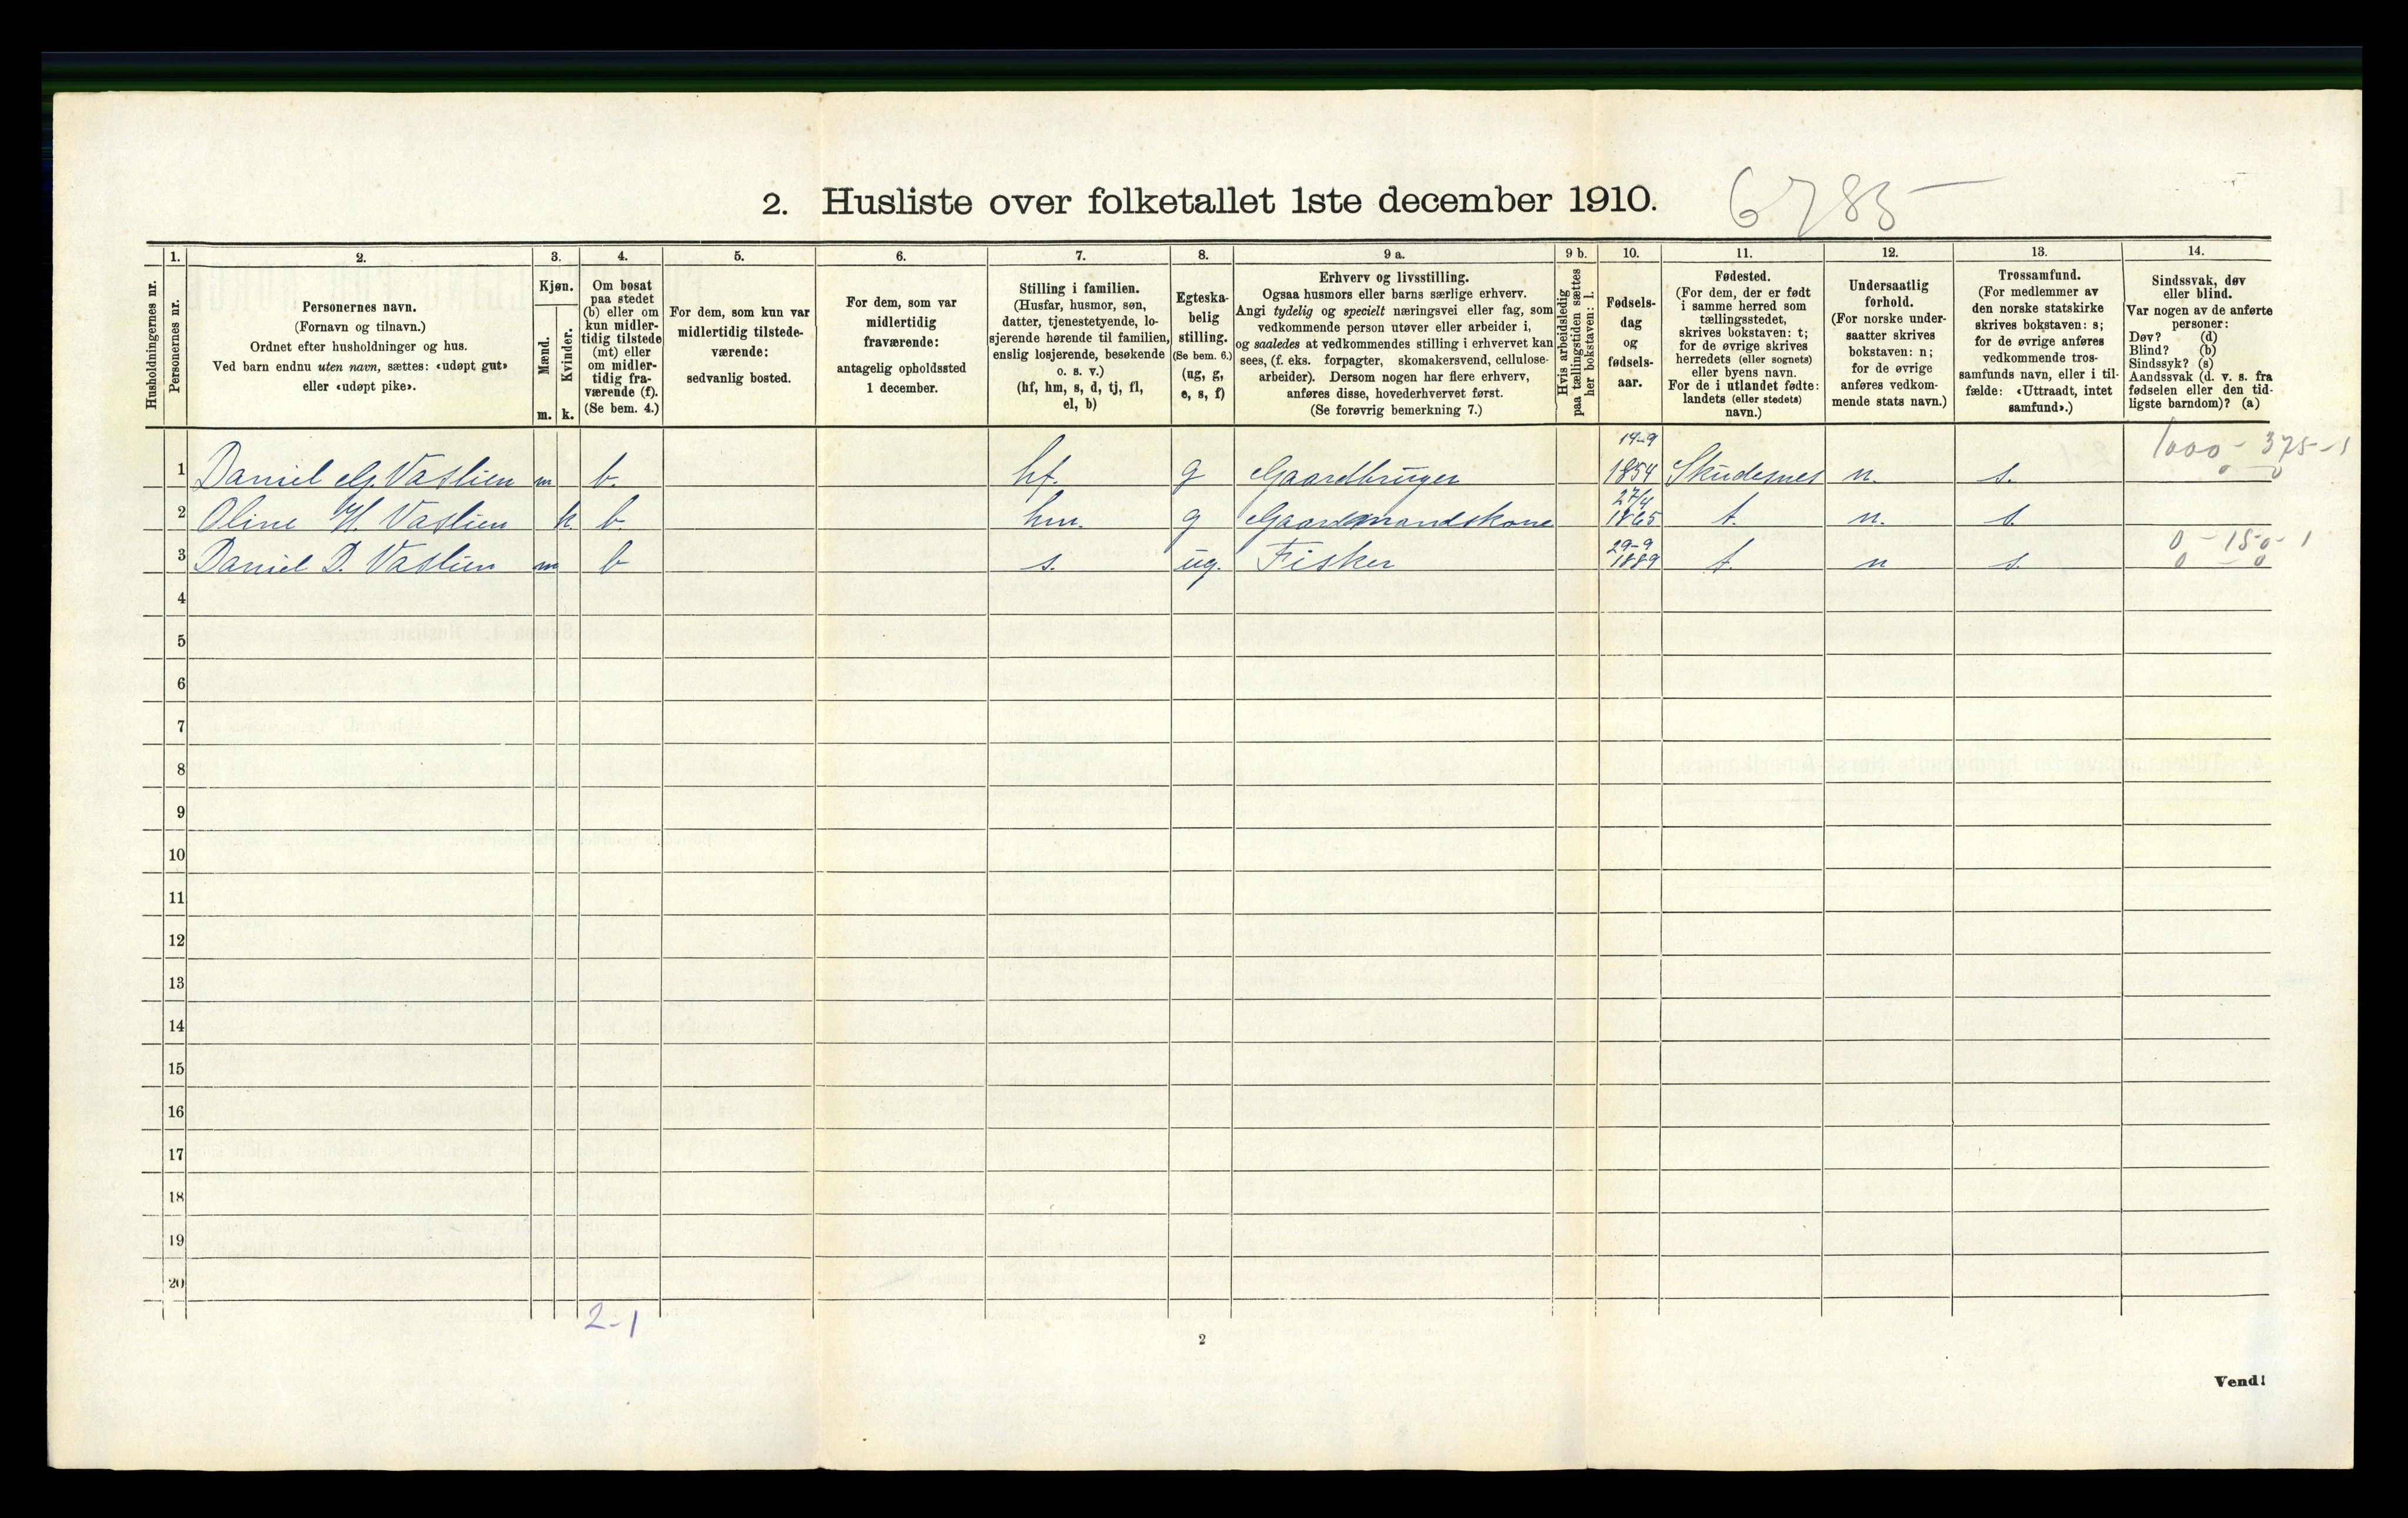 2. Husliste over folketallet 1ste december 1910. 6785
Husholdningernes nr.
1. Personernes nr.
2. Personernes navn.
(Fornavn og tilnavn.)
Ordnet efter husholdninger og hus.
Ved barn endnu uten navn, sættes: «udøpt gut»
eller «udøpt pike».
3. Kjøn.
Mænd. m.
Kvinder. k.
4. Om bosat
paa stedet
(b) eller om
kun midler-
tidig tilstede
(mt) eller
om midler-
tidig fra-
værende (f).
(Se bem. 4.)
5. For dem, som kun var
midlertidig tilstede-
værende:
sedvanlig bosted.
6. For dem, som var
midlertidig
fraværende:
antagelig opholdssted
1 december.
7. Stilling i familien.
(Husfar, husmor, søn,
datter, tjenestetyende, lo-
sjerende hørende til familien,
enslig losjerende, besøkende
o. s. v.)
(hf, hm, s, d, tj, fl,
el, b)
8. Egteska-
belig
stilling.
(Se bem. 6.)
(ug, g,
e, s, f)
9 a. Erhverv og livsstilling.
Ogsaa husmors eller barns særlige erhverv.
Angi tydelig og specielt næringsvei eller fag, som
vedkommende person utøver eller arbeider i,
og saaledes at vedkommendes stilling i erhvervet kan
sees, (f. eks. forpagter, skomakersvend, cellulose-
arbeider). Dersom nogen har flere erhverv,
anføres disse, hovederhvervet først.
(Se forøvrig bemerkning 7.)
9 b. Hvis arbeidsledig
paa tællingstiden sættes
her bokstaven: l.
10. Fødsels-
dag
og
fødsels-
aar.
11. Fødested.
(For dem, der er født
i samme herred som
tællingsstedet,
skrives bokstaven: t;
for de øvrige skrives
herredets (eller sognets)
eller byens navn.
For de i utlandet fødte:
landets (eller stedets)
navn.)
12. Undersaatlig
forhold.
(For norske under-
saatter skrives
bokstaven: n;
for de øvrige
anføres vedkom-
mende stats navn.)
13. Trossamfund.
(For medlemmer av
den norske statskirke
skrives bokstaven: s;
for de øvrige anføres
vedkommende tros-
samfunds navn, eller i til-
fælde: «Uttraadt, intet
samfund».)
14. Sindssvak, døv
eller blind.
Var nogen av de anførte
personer:
Døv? (d)
Blind? (b)
Sindssyk? (s)
Aandssvak (d. v. s. fra
fødselen eller den tid-
ligste barndom)? (a)
1 Daniel G. Vaslien m b. hf. g Gaardbruger 14-9 1854 Skudesnes n. s. 1000 - 375 - 1 0 - 0
2 Oline H. Vaslien k b hm. g Gaardmandskone 27/4 1865 t. n. s.
3 Daniel D. Vaslien m b s. ug. Fisker 29-9 1889 t. n s. 0 - 150 - 1 0 - 0
4
5
6
7
8
9
10
11
12
13
14
15
16
17
18
19
20
2-1
2
Vend!